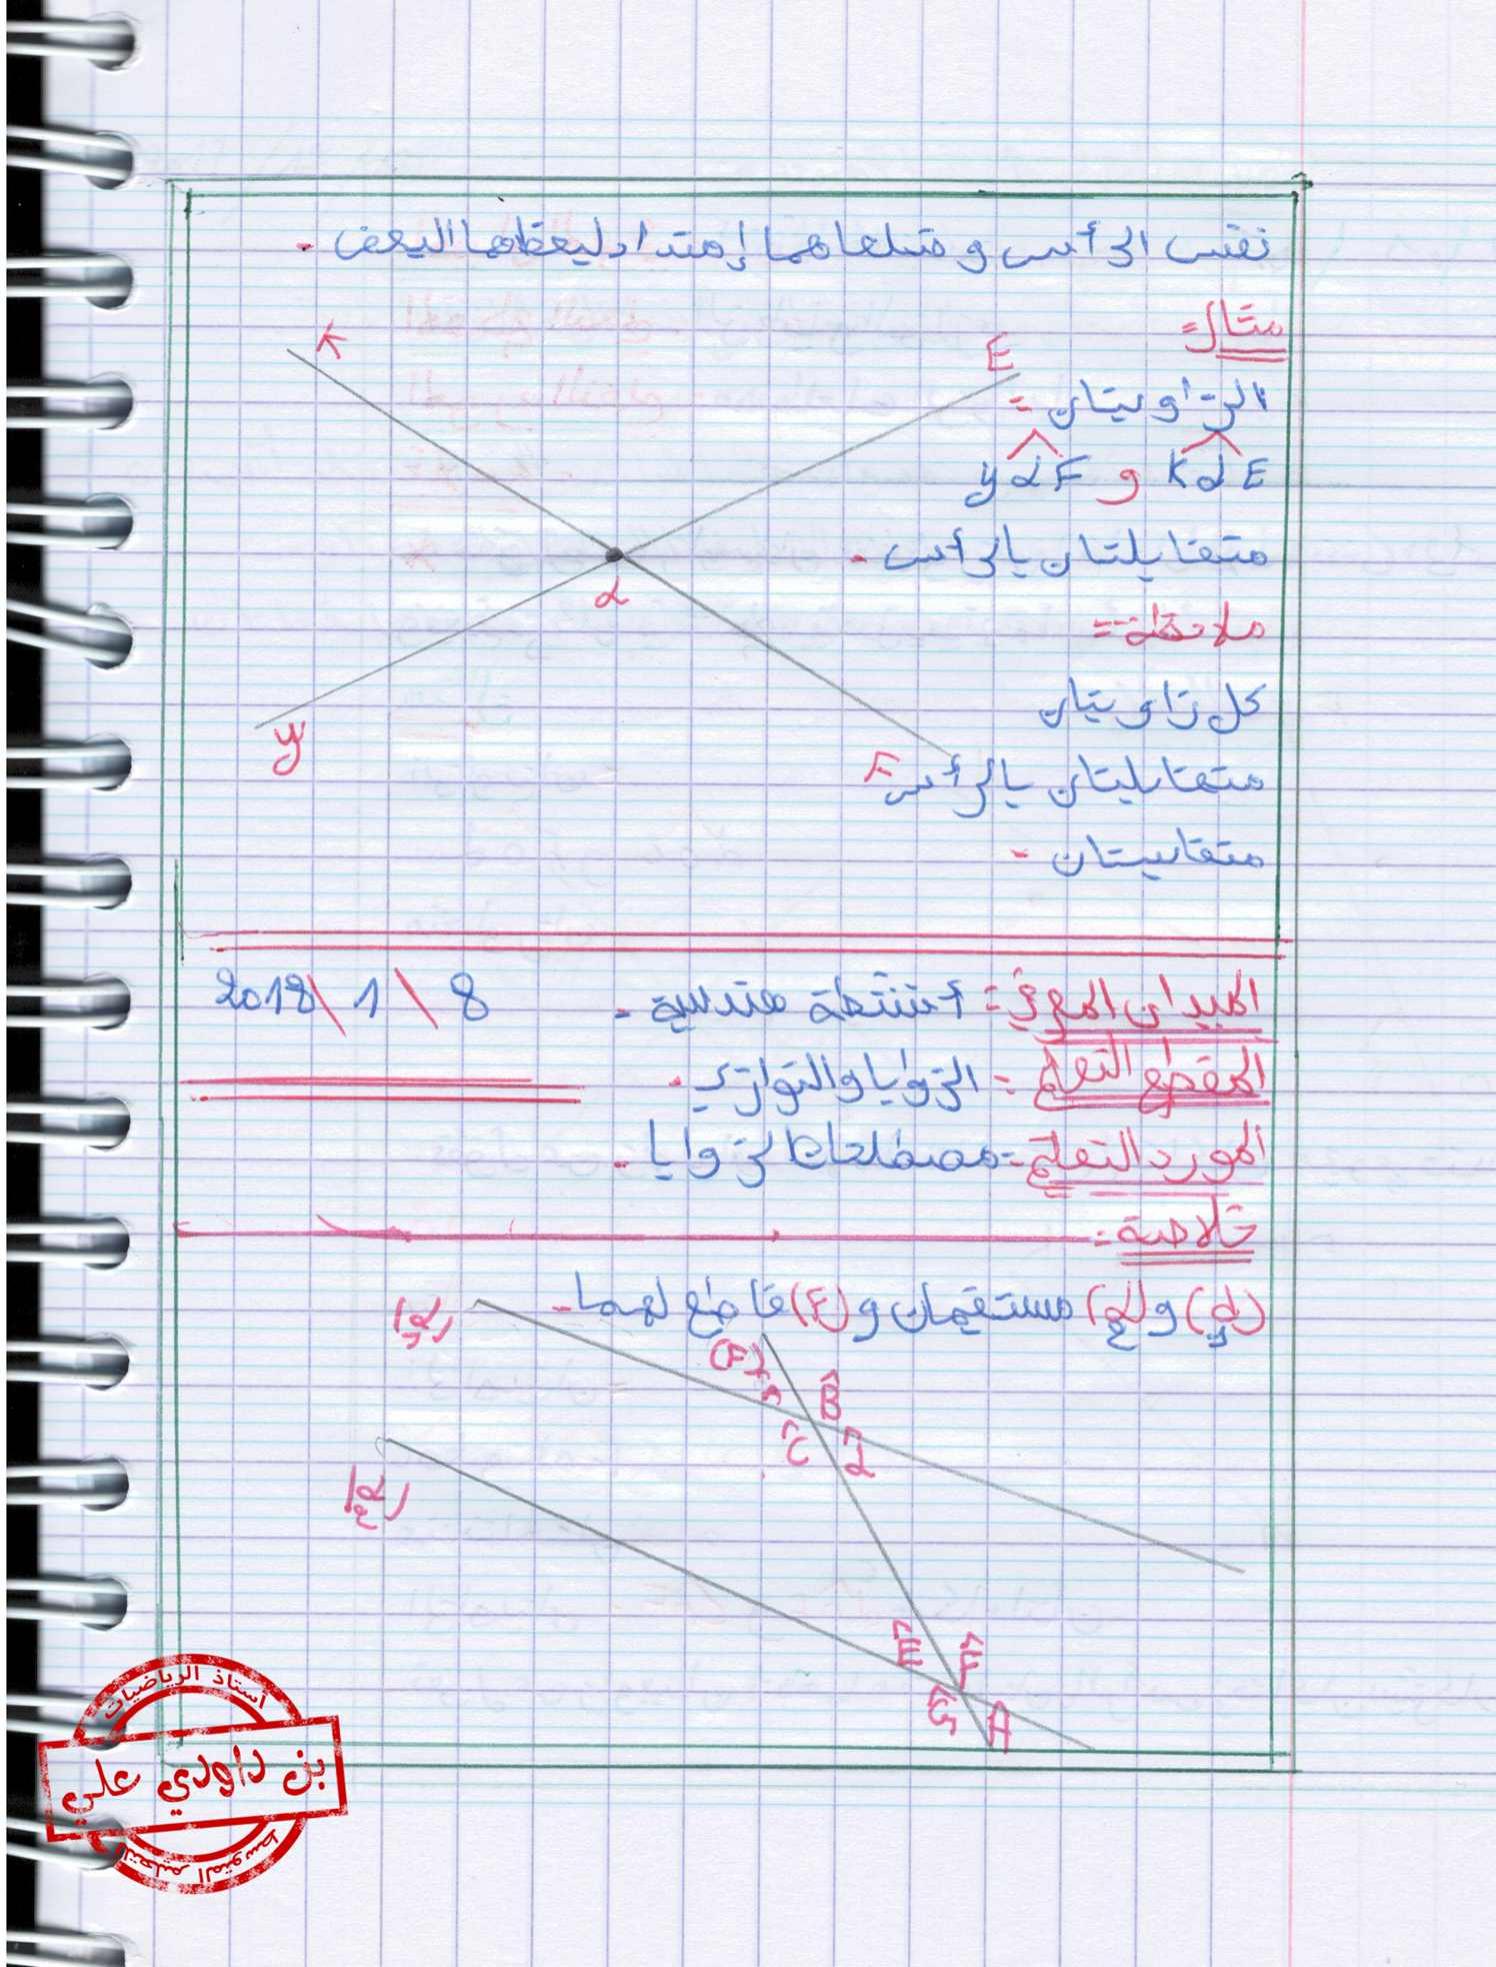 نفس الرأس و ضلعاهما إمتداد ليعظهما اليعض .
مثال =
K
E
الزاويتان =
KαE و yαF
متقابلتان بالرأس .
α
ملاحظة =
كل زاويتان
y
متقابليتان بالرأس
F
متقابيستان .
الميدان المعرفي = أنشطة هندسية .
8 \ 1 \ 2018
المقطع التعلمي = الزوايا والتوازي .
المورد التعلمي = مصطلحات الزوايا .
خلاصة =
و مستقيمان و (F) قاطع لهما .
(F)
B̂
Ĉ
Ê
F̂
Ĝ
أستاذ الرياضيات
بن داودي علي
التعليم المتوسط